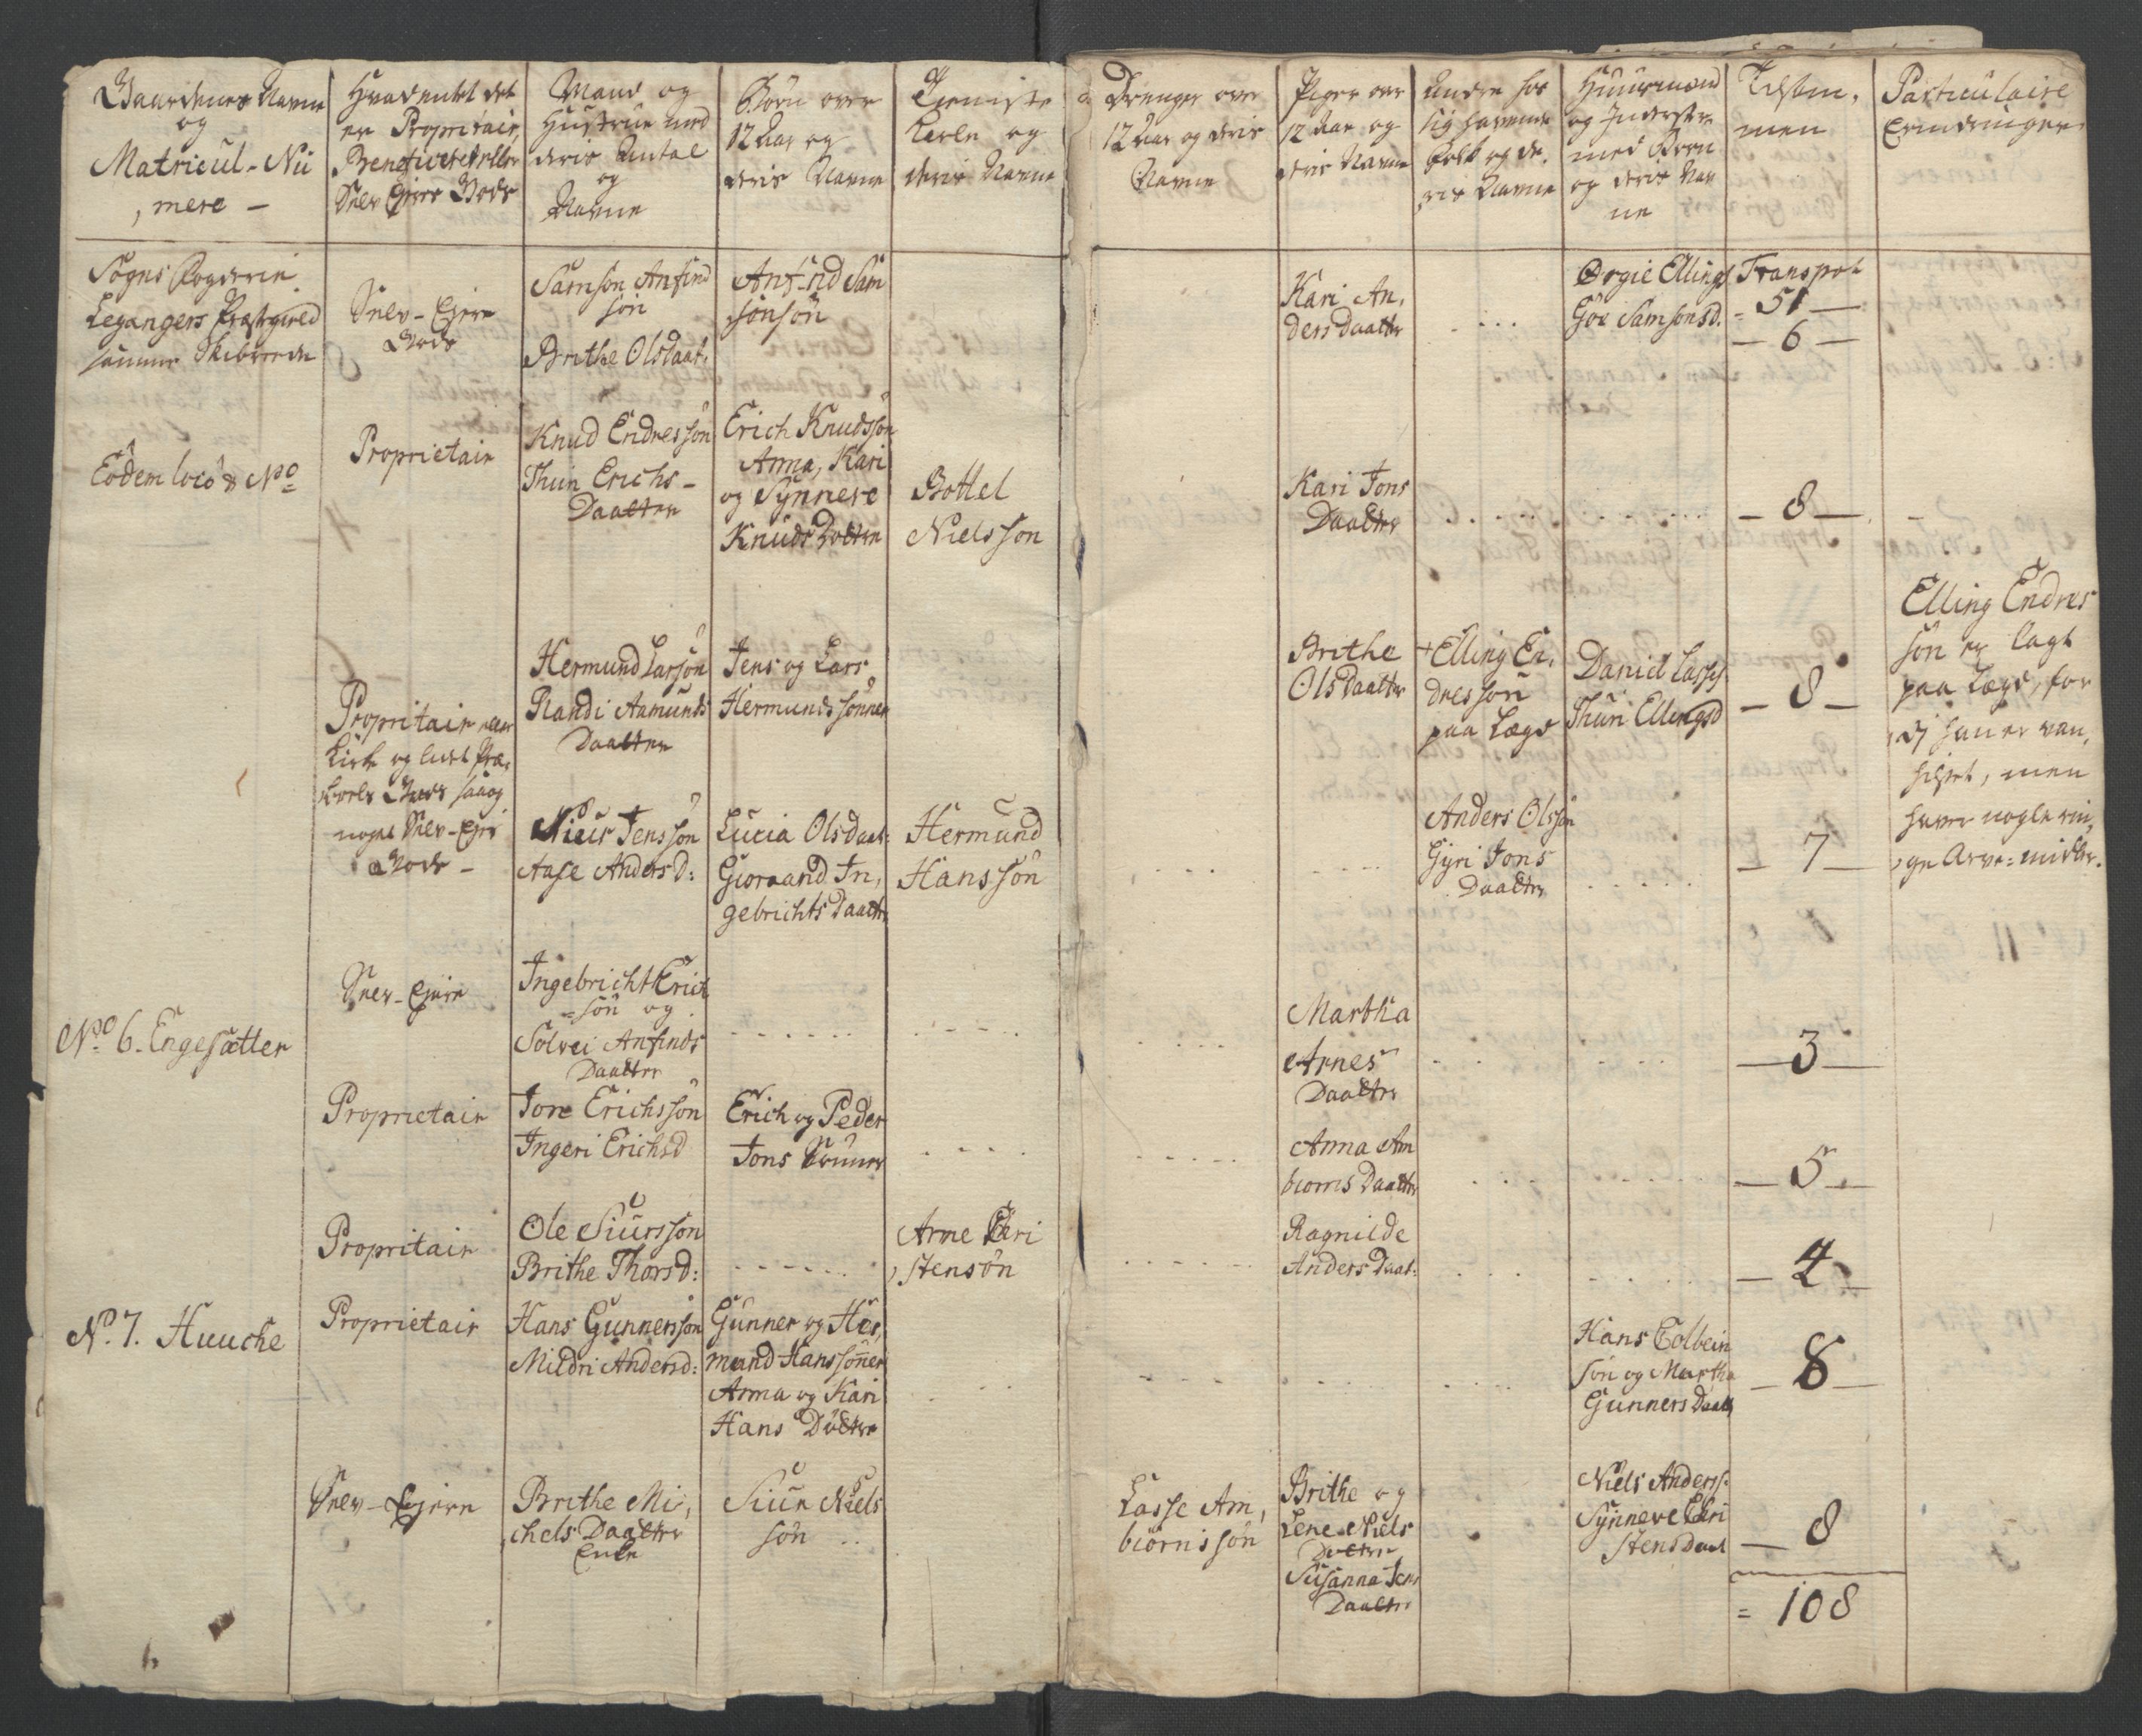 Gaardenes Navne
og
Matricul-Nu
mere -
Hvad endtel det
er Propritair,
Beneficeret eller
Selv Ejere Gods
Mand og
Hustrue med
deris Antal
og
Navne
Børn over
12 Aar og
deris Navne
Tieniste
Karle og
deris Navne
Drenger over
12 Aar og deris
Navne
Piger over
12 Aar og
deris Navne
Andre hos
sig havende
Folk og de,
ris Navne
Huusmænd
og Inderster
med Børn
og deris Nav
ne
Tilsam,
men
Particulaire
Erindringer
Sogns Fogderie
Legangers Præstegield
samme Skibrede
Selv-Ejere
Gods
Samson Anfind
søn
Brithe Olsdaat:
Anfind Sam
sønsøn
Kari An,
dersdaatter
. . . .
Ørgie Ellings
Gør Samsonsd.
Transport
= 51 -
- 6 -
Eodem loco & No
Proprietair
Knud Endressøn
Thuri Erichs-
Daatter
Erich Knudssøn
Anna, Kari
og Synneve
Knuds Døttre
Bottel
Nielssøn
Kari Jons
Daatter
- 8 -
Propritair eller
Kirke og
Gods saa og
noget Selv-Ejer
Gods -
Hermund Larsøn
Randi Aamunds
Daatter
Jens og Lars
Hermunds sønner
Brithe
Olsdaatter
+ Elling En,
dressøn
paa Lægd
Daniel Lasses
Thuri Ellingsd
- 8 -
Elling Endres
søn er lagt
paa Lægd, for
di han er van,
ført, men
haver nogle rin,
ge Arve-midler.
Niels Jenssøn
Aase Andersd:
Lucia Olsdaat:
Giorvand In,
gebrichts Daatter
Hermund
Hanssøn
Anders Olssøn
Gyri Jons
Daatter
- 7 -
No 6. Engesætter
Selv-Ejere
Ingebricht Erich
=søn og
Solvei Anfinds
Daatter
Martha
Arnes
Daatter
- 3 -
Proprietair
Jone Erichssøn
Ingeri Erichsd
Erich og Peder
Jons Sønner
Anna Am
biørns Daatter
- 5 -
Propritair
Ole Siurssøn
Brithe Thorsd:
Arne Chri
stensøn
Ragnilde
Anders Daat:
- 4 -
No. 7. Huuche
Proprietair
Hans Gunnerssøn
Mildri Andersd:
Gunner og Her,
mund Hanssønner
Anna og Kari
Hans Døttre
Hans Colbein
søn og Martha
Gunners Daatt
- 8 -
Selv-Ejere
Brithe Mi,
chels Daatter
Enke
Siur Niels
søn ..
Lasse Am,
biørnssøn
Brithe og
Lene Niels
Døttre
Susanna Jens
Daatter
Niels Anderss:
Synneve Chri
stens Daat
- 8
= 108